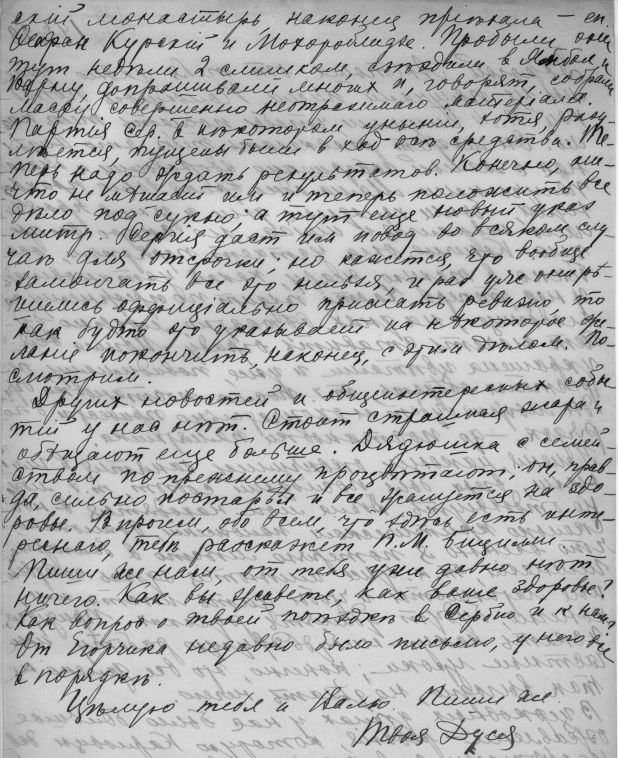 скій монастырь наконец пріѣхала – еп.
Серафим Курскій и Махароблидзе. Пробыли они
тут недѣли 2 слишком, ѣздили в Ямбол и
Варну, допрашивали многих и, говорят, собрали
массу совершенно неотразимаго матеріала.
Партія сер. в нѣкотором уныніи, хотя, разу-
мѣется, пущены были в ход всѣ средства. Те-
перь надо ждать результатов. Конечно, ни-
что не мѣшает им и теперь положить все
дѣло под сукно; а тут еще новый указ
митр. Сергія даст им повод во всяком слу-
чаѣ для отсрочки; но кажется, что вообще
замолчать все это нельзя, и раз уже они рѣ-
шились оффиціально прислать ревизію, то
как будто это указывает на нѣкоторое же-
ланіе покончить, наконец, с этим дѣлом. По-
смотрим.
Других новостей и общеинтересных собы-
тій у нас нѣт. Стоит страшная жара и
обѣщают еще больше. Дядюшка с семей-
ством по прежнему процвѣтают; он, прав-
да, сильно постарѣл и все жалуется на здо-
ровье. Впрочем, обо всем, что здѣсь есть инте-
реснаго, тебѣ разскажет П.М. Бицилли
Пиши же нам, от тебя уже давно нѣт
ничего. Как вы живете, как ваше здоровье?
Как вопрос о твоей поѣздкѣ в Сербію и к нам?
От Егорчика недавно было письмо, у него все
в порядкѣ.
Цѣлую тебя и Калю. Пиши же.
Твоя Дуся